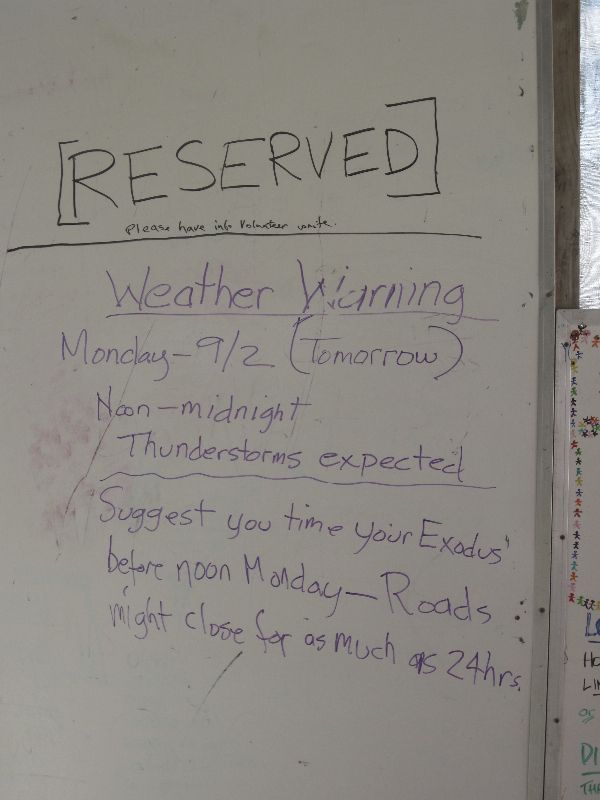 [RESERVED]
Please have info Volunteer write.
Weather Warning
Monday - 9/2 (Tomorrow)
Noon - midnight
Thunderstorms expected
Suggest you time your Exodus'
before noon Monday — Roads
might close for as much as 24hrs.
HO
LIN
DI
THA